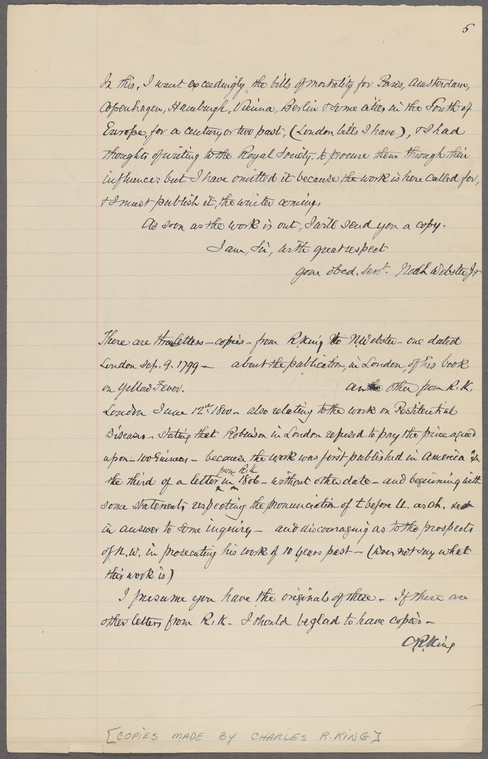 5
In this, I want exceedingly the bills of mortality for Paris, Amsterdam,
Copenhagen, Hamburgh, Vienna, Berlin & some cities in the South of
Europe, for a century or two past; (London bills I have), & I had
thoughts of writing to the Royal Society, to procure them through their
influence: but I have omitted it because the work is here called for,
& I must publish it, the winter coming.
As soon as the work is out, I will send you a copy.
I am, Sir, with great respect
your obed. Servt. Noah Webster Jr
There are three letters – copies – from R. King to N. Webster – one dated
London Sep. 9. 1799 – about the publication, in London, of his book
on Yellow Fever. another from R.K.
London June 12th 1800 – also relating to the work on Pestilential
Diseases – stating that Robinson in London refused to pay the price agreed
upon – 100 Guineas – because the work was first published in America &
from R.K
the third of a letter in 1806 – without other date – and beginning with
some statements respecting the pronunciation of t before u. as ch.
in answer to some inquiry – and discouraging as to the prospects
of N.W. in prosecuting his work of 10 years past – (does not say what
this work is)
I presume you have the originals of these – If there are
other letters from R.K. I should be glad to have copies –
C.R. King
[COPIES MADE BY CHARLES R. KING]